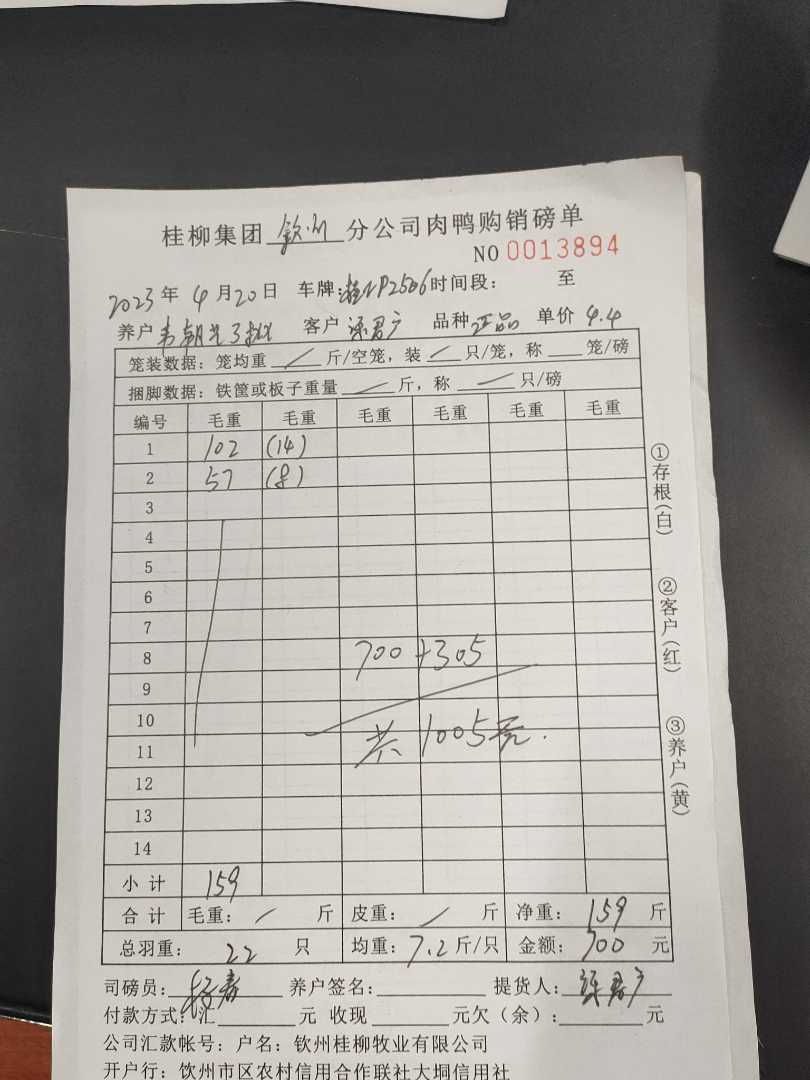 桂柳集团 钦州 分公司肉鸭购销磅单
NO 0013894
2023 年 4 月 20 日 车牌: 桂NP2506 时间段: 至
养户 韦朝 客户 品种 正品 单价 4.4
笼装数据: 笼均重 / 斤/空笼, 装 / 只/笼, 称 笼/磅
捆脚数据: 铁筐或板子重量 / 斤, 称 / 只/磅
编号 毛重 毛重 毛重 毛重 毛重 毛重
1 102 (14)
2 57 (8)
3
4
5
6
7
8 700+305
9
10
11 共1005元.
12
13
14
小计 159
合计 毛重: / 斤 皮重: / 斤 净重: 159 斤
总羽重: 22 只 均重: 7.2 斤/只 金额: 700 元
司磅员: 养户签名: 提货人:
付款方式: 汇 元 收现 元欠(余): 元
公司汇款帐号: 户名: 钦州桂柳牧业有限公司
开户行: 钦州市区农村信用合作联社大垌信用社
①存根(白)
②客户(红)
③养户(黄)